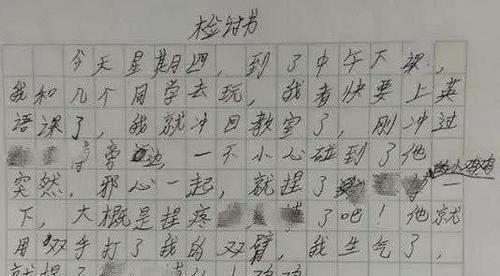 检讨书
今天星期四,到了中午下课,
我和几个同学去玩,我看快要上英
语课了,我就冲回教室了,刚冲过
旁边,一不小心碰到了他
突然,邪心一起,就捏了 一
下,大概是捏疼 了吧!他就
用双手打了我的双臂,我生气了,
就捏了